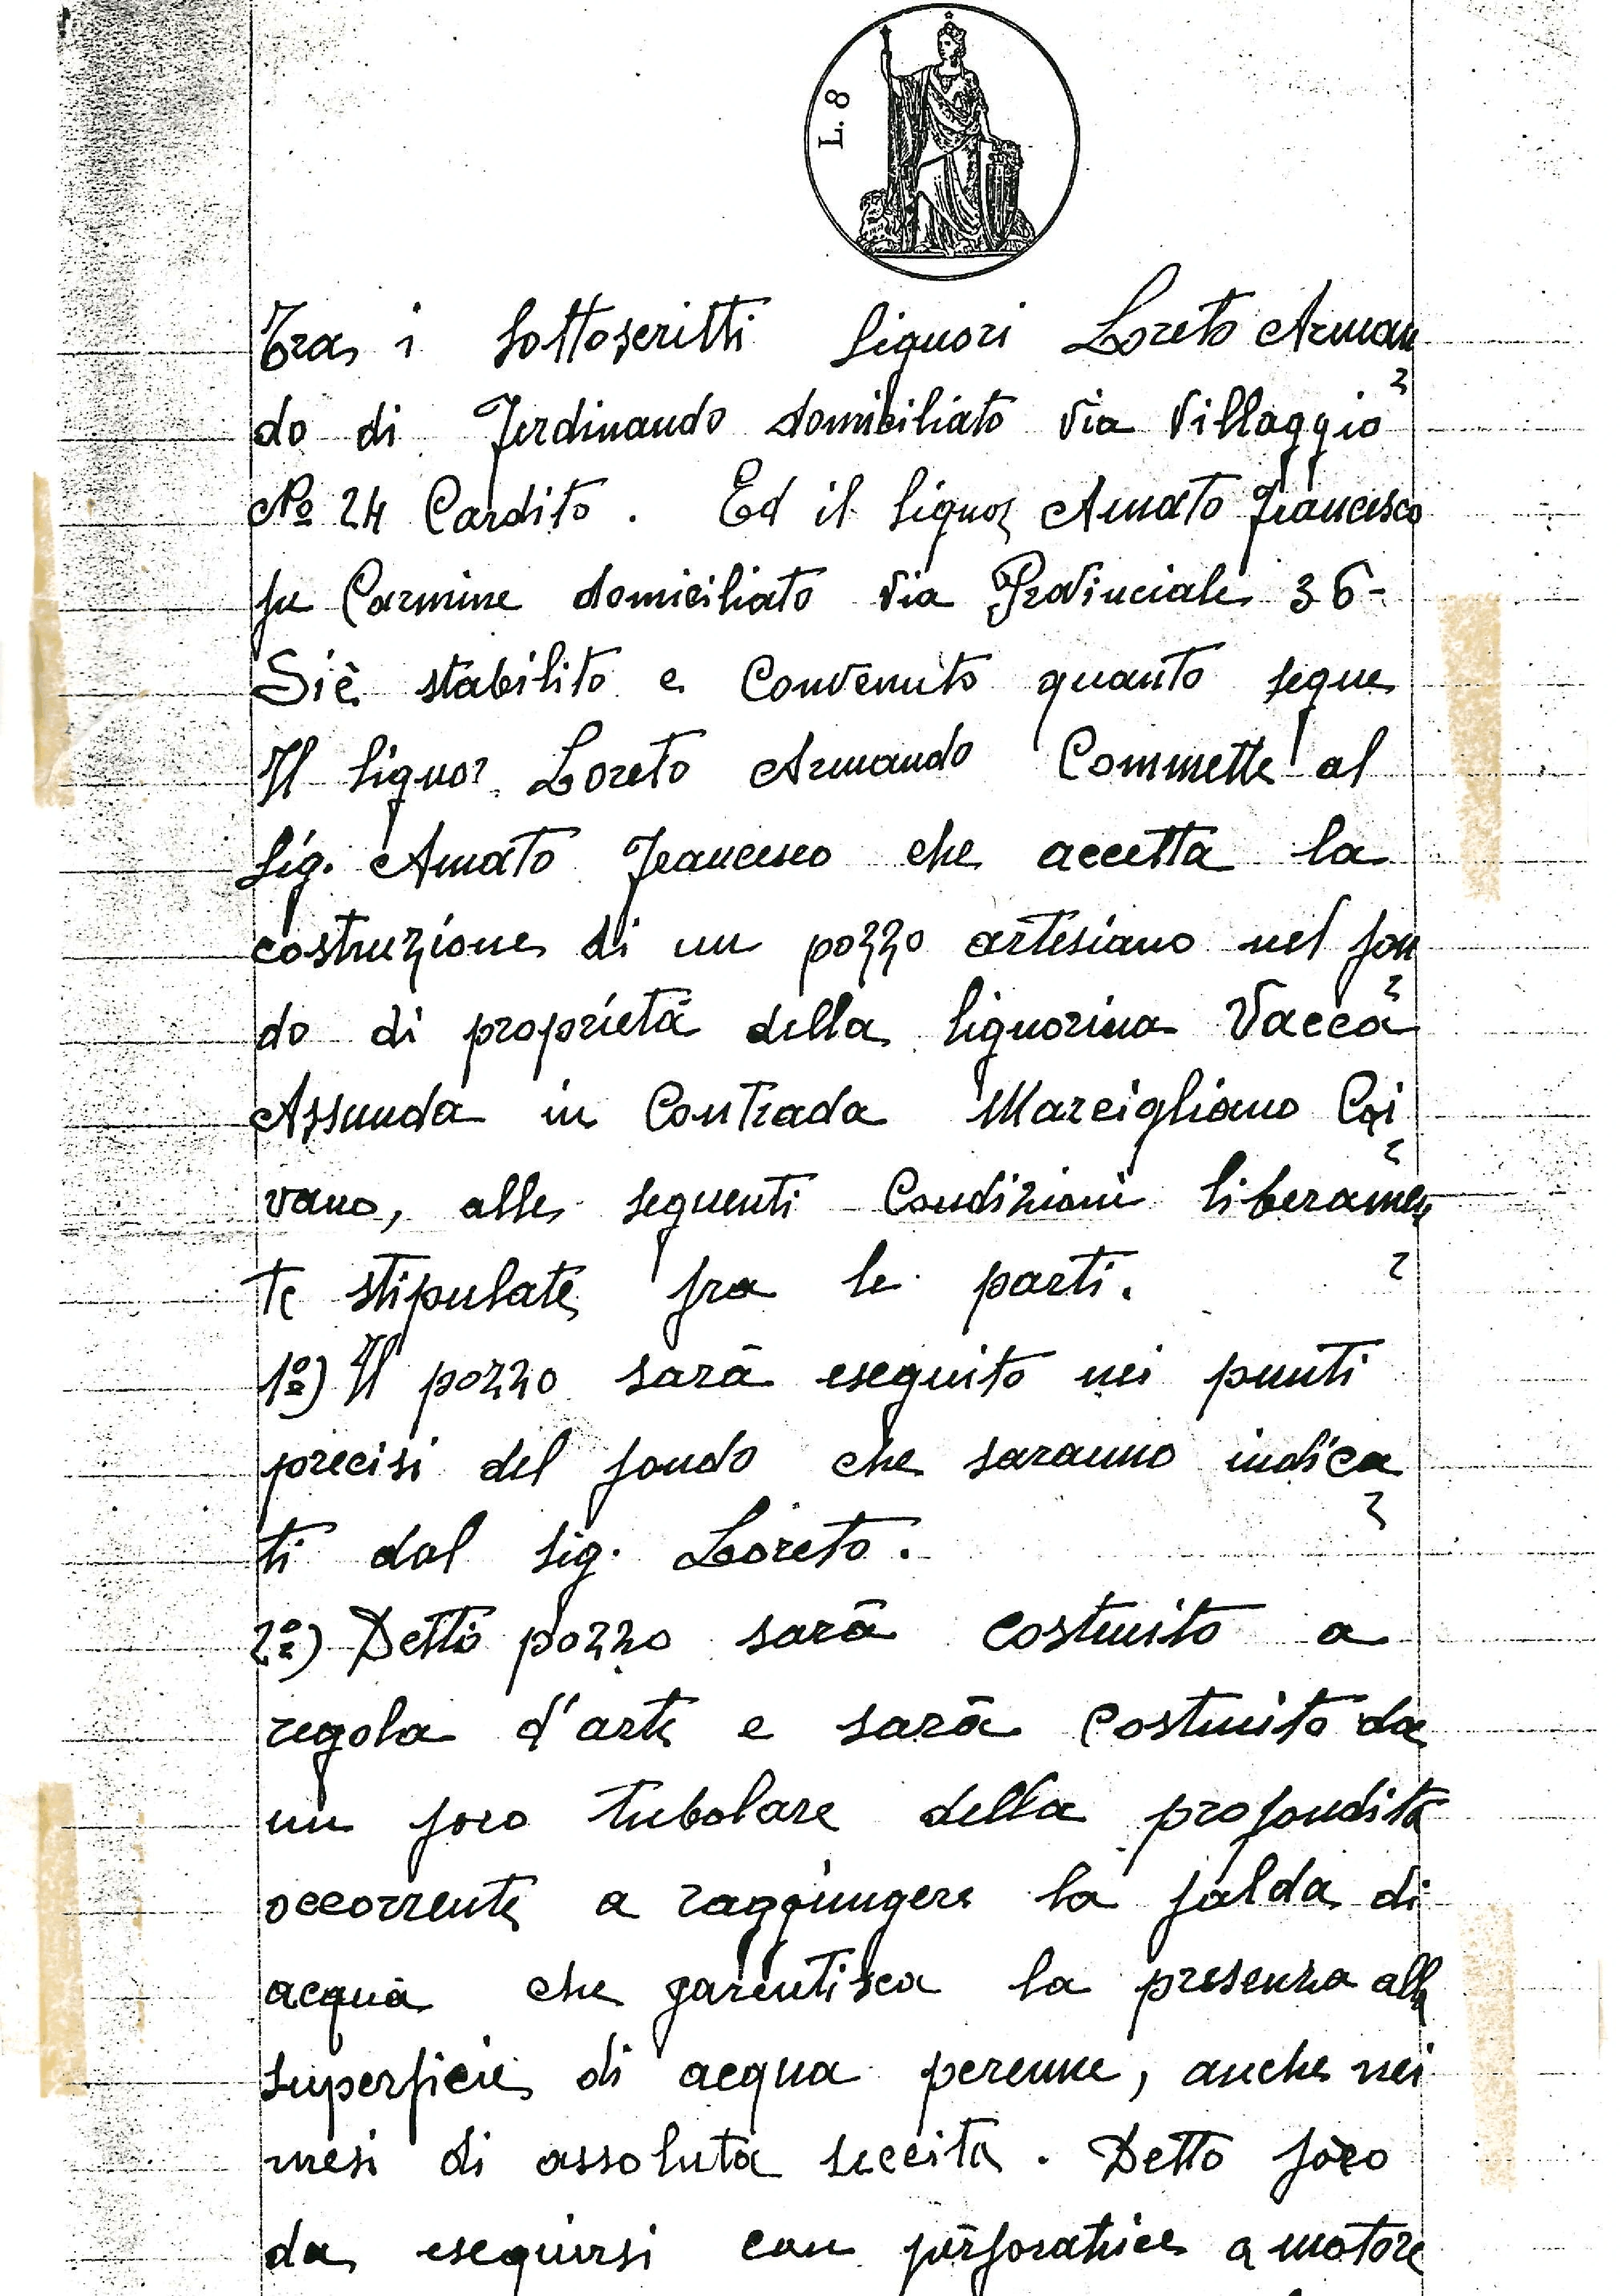 L. 8
Tra i sottoscritti Signori Loreto Arman
do di Ferdinando domiciliato Via Villaggio
Nº 24 Cardito. Ed il Signor Amato Francesco
fu Carmine domiciliato Via Provinciale 36-
Si è stabilito e Convenuto quanto segue
Il Signor Loreto Armando Commette al
Sig. Amato Francesco che accetta la
costruzione di un pozzo artesiano nel fon
do di proprietà della Signorina Vacca
Assunda in Contrada Marcigliano Cai
vano, alle seguenti Condizioni liberamen
te stipulate fra le parti.
1º) Il pozzo sarà eseguito nei punti
precisi del fondo che saranno indica
ti dal Sig. Loreto.
2º) Detto pozzo sarà costruito a
regola d'arte e sarà Costruito da
un foro tubolare della profondità
occorrente a raggiungere la falda di
acqua che garentisca la presenza alla
superficie di acqua perenne, anche nei
mesi di assoluta seccità. Detto foro
da eseguirsi con perforatrice a motore